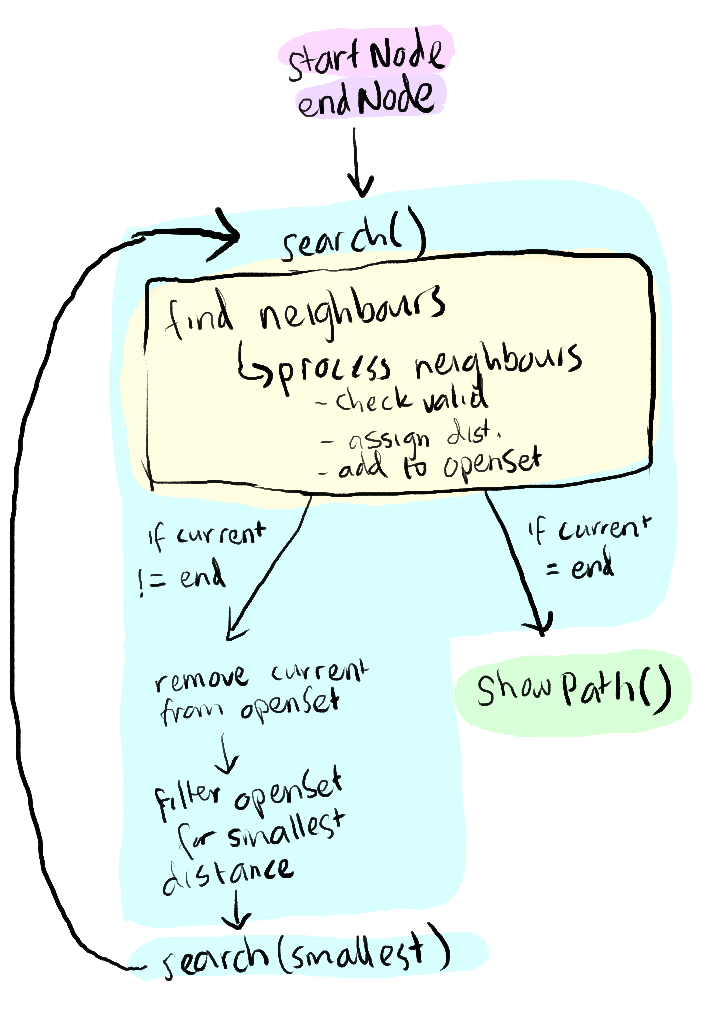 startNode
endNode
search()
find neighbours
process neighbours
- check valid
- assign dist.
- add to openSet
if current
!= end
if current
= end
remove current
from openSet
showPath()
filter openSet
for smallest
distance
search(smallest)